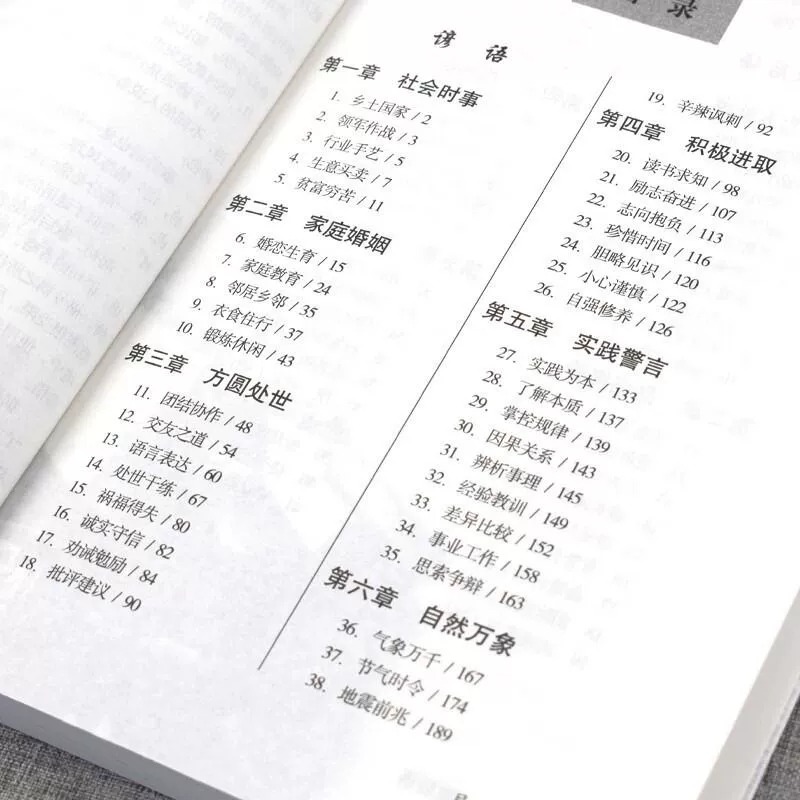 录
谚 语
第一章 社会时事
1. 乡土国家 / 2
2. 领军作战 / 3
3. 行业手艺 / 5
4. 生意买卖 / 7
5. 贫富穷苦 / 11
第二章 家庭婚姻
6. 婚恋生育 / 15
7. 家庭教育 / 24
8. 邻居乡邻 / 35
9. 衣食住行 / 37
10. 锻炼休闲 / 43
第三章 方圆处世
11. 团结协作 / 48
12. 交友之道 / 54
13. 语言表达 / 60
14. 处世干练 / 67
15. 祸福得失 / 80
16. 诚实守信 / 82
17. 劝诫勉励 / 84
18. 批评建议 / 90
19. 辛辣讽刺 / 92
第四章 积极进取
20. 读书求知 / 98
21. 励志奋进 / 107
22. 志向抱负 / 113
23. 珍惜时间 / 116
24. 胆略见识 / 120
25. 小心谨慎 / 122
26. 自强修养 / 126
第五章 实践警言
27. 实践为本 / 133
28. 了解本质 / 137
29. 掌控规律 / 139
30. 因果关系 / 143
31. 辨析事理 / 145
32. 经验教训 / 149
33. 差异比较 / 152
34. 事业工作 / 158
35. 思索争辩 / 163
第六章 自然万象
36. 气象万千 / 167
37. 节气时令 / 174
38. 地震前兆 / 189